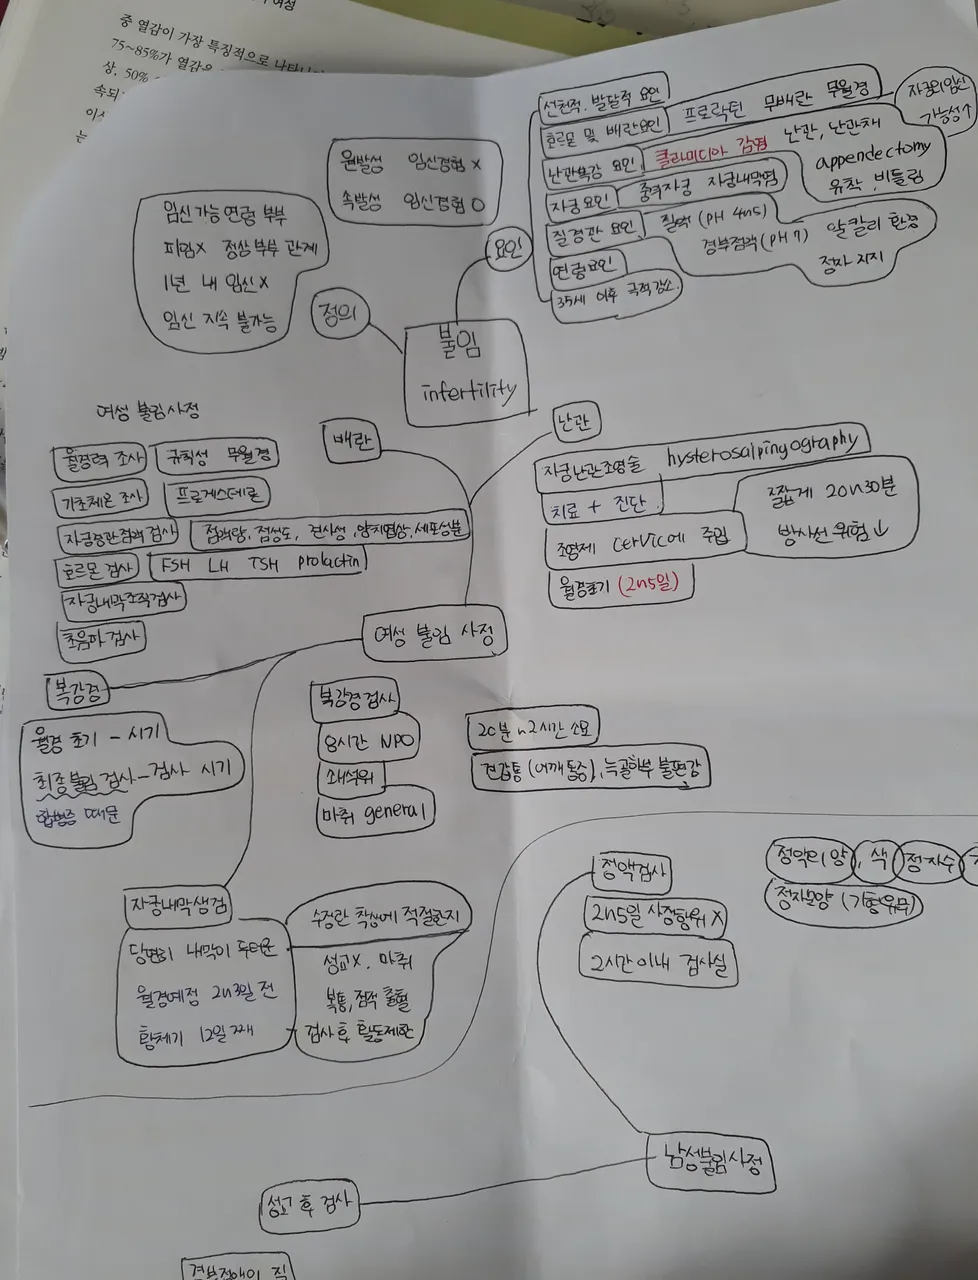 여성
중 열감이 가장 특징적으로 나타나
75~85%가 열감을
상, 50%
속되
이
는
원발성 임신경험 X
속발성 임신경험 O
임신 가능 연령 부부
피임X 정상 부부 관계
1년 내 임신X
임신 지속 불가능
정의
요인
불임
infertility
선천적. 발달적 요인
호르몬 및 배란요인 프로락틴 무배란 무월경
난관복강 요인 클라미디아 감염 난관, 난관채
appendectomy
유착, 비틀림
자궁외임신
가능성↑
자궁요인 중격자궁 자궁내막염
질경관 요인 질액 (pH 4~5)
경부점액 (pH 7) 알칼리 환경
정자 지지
연령요인
35세 이후 급격감소.
여성 불임사정
배란
월경력 조사 규칙성 무월경
기초체온 조사 프로게스테론
자궁경관점액 검사 점액량, 점성도, 견사성, 양치엽상, 세포성분
호르몬 검사 FSH LH TSH prolactin
자궁내막조직검사
초음파 검사
난관
자궁난관조영술 hysterosalpingography
치료 + 진단.
조영제 cervic에 주입
월경초기 (2~5일)
짧게 20~30분
방사선 위험↓
여성 불임 사정
복강경
월경 초기 - 시기
최종불임 검사 - 검사 시기
합병증 때문
복강경 검사
8시간 NPO
쇄석위
마취 general
20분~2시간 소요
견갑통 (어깨 통증), 늑골하부 불편감
자궁내막생검
당연히 내막이 두터운
월경예정 2~3일 전
황체기 12일 째
수정란 착상에 적절한지
성교X. 마취
복통, 점적 출혈
검사 후 활동제한
정액검사
2~5일 사정행위 X
2시간 이내 검사실
정액의 양, 색 정자수
정자모양 (기형유무)
남성불임사정
성교 후 검사
경부점액의 질